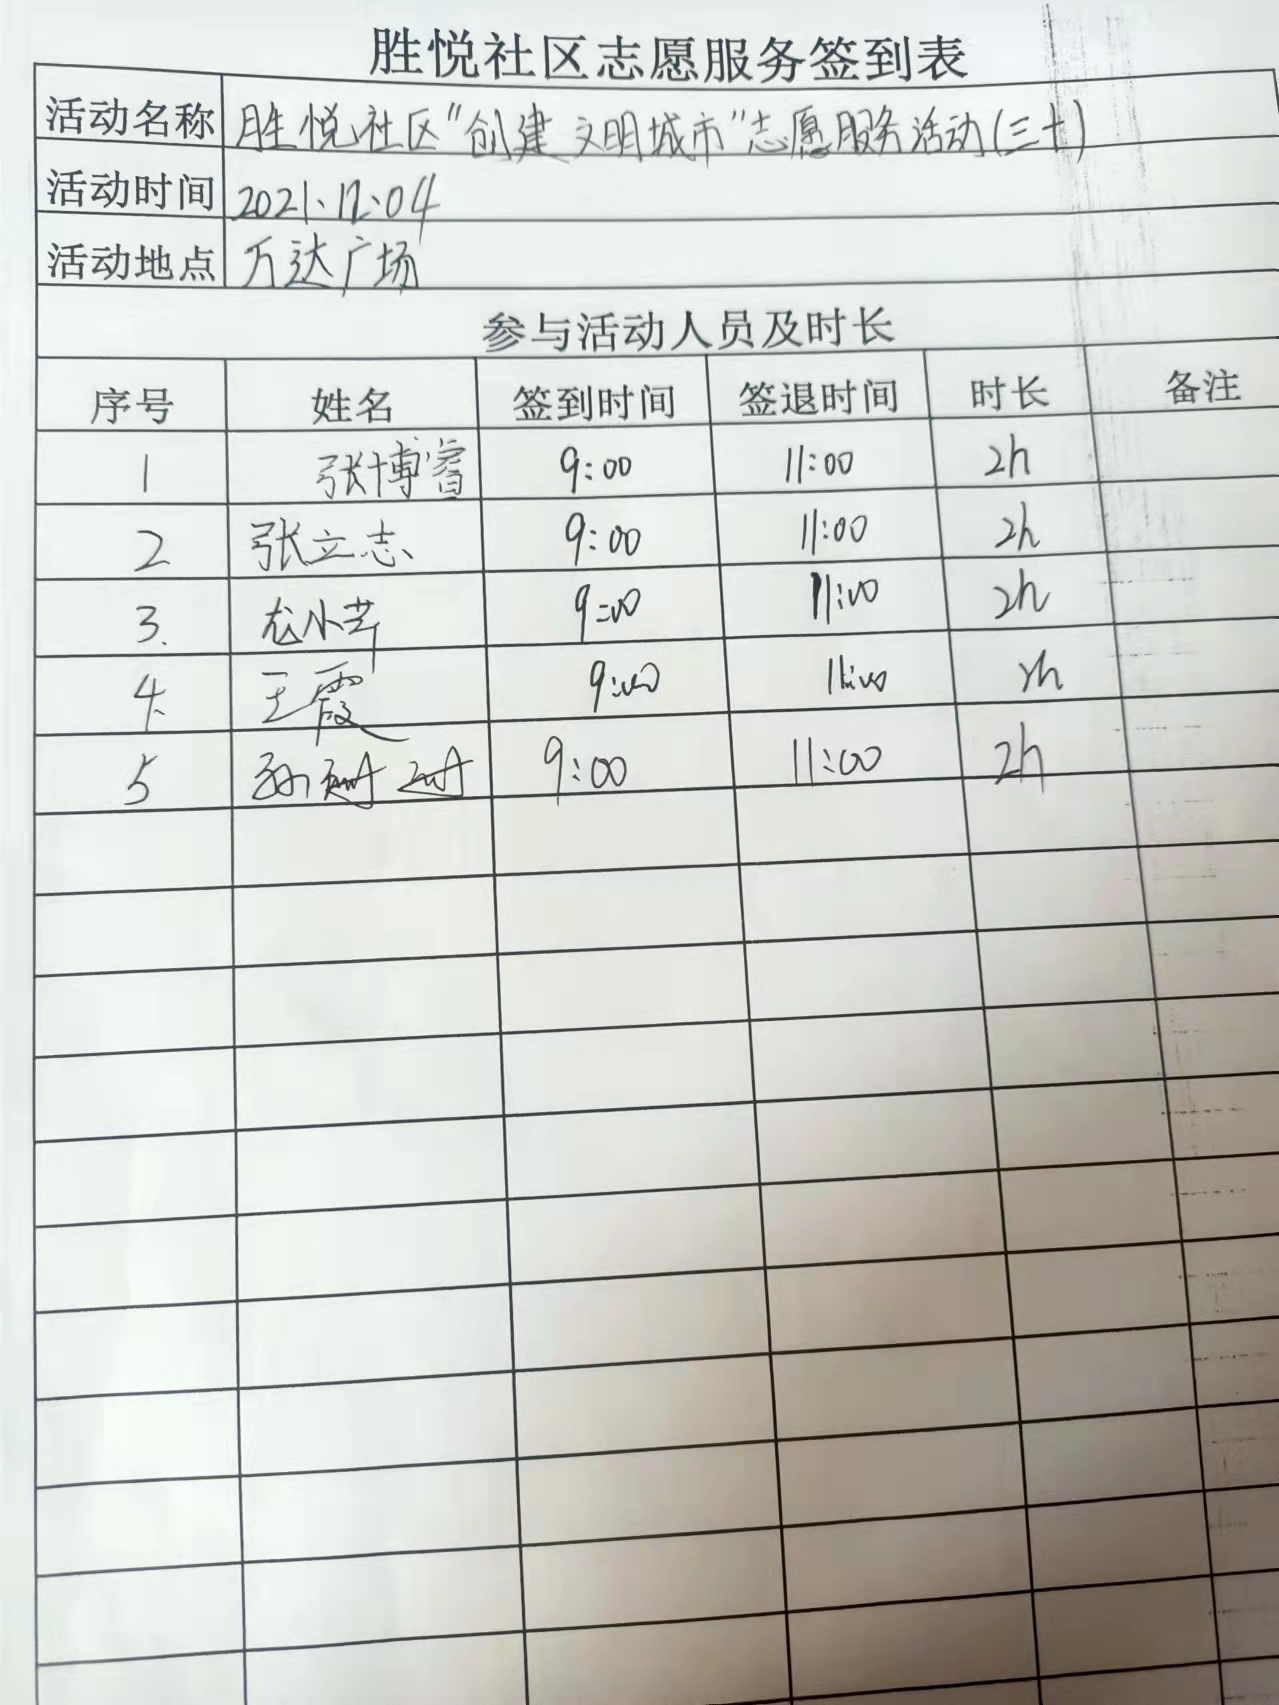 胜悦社区志愿服务签到表
活动名称 胜悦社区“创建文明城市”志愿服务活动(三十)
活动时间 2021.12.04
活动地点 万达广场
参与活动人员及时长
序号 姓名 签到时间 签退时间 时长 备注
1 张博睿 9:00 11:00 2h
2 张立志 9:00 11:00 2h
3. 9:00 11:00 2h
4. 王霞 9:00 11:00 2h
5 孙 9:00 11:00 2h